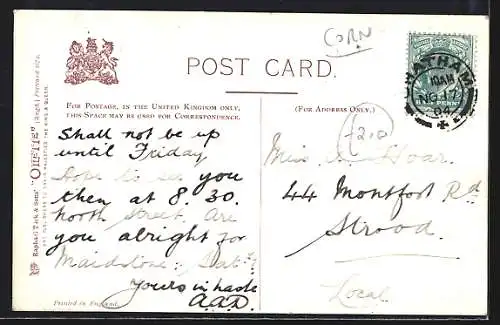 CORN
POST CARD.
FOR POSTAGE, IN THE UNITED KINGDOM ONLY,
THIS SPACE MAY BE USED FOR CORRESPONDENCE.
(FOR ADDRESS ONLY.)
Raphael Tuck & Sons' "OILETTE" [Regd.] Postcard
CHATHAM
10 AM
NO 17
Shall not be up
until Friday
Love to see you
then at 8.30.
North Street. Are
you alright for
Maidstone: Sat:?
Yours in haste
A.A.D.
Miss Hoar.
44 Montfort Rd
Strood.
Local
Printed in England.